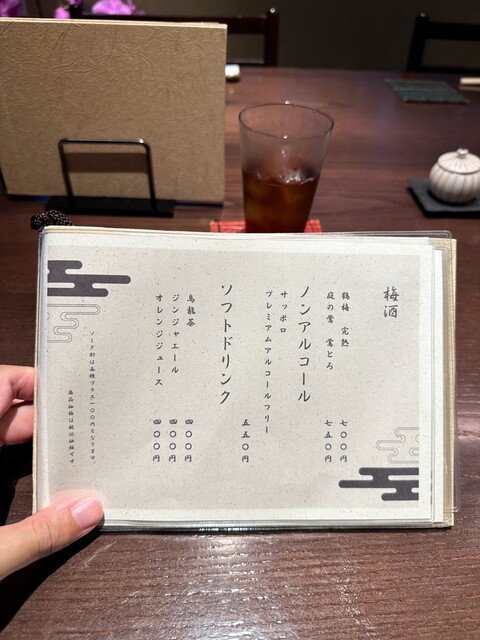 梅酒
鶴梅 完熟 七〇〇円
庭の鶯 鶯とろ 七五〇円
ノンアルコール
サッポロ
プレミアムアルコールフリー 五五〇円
ソフトドリンク
烏龍茶 四〇〇円
ジンジャエール 四〇〇円
オレンジジュース 四〇〇円
ソーダ割は各種プラス一〇〇円となります。
商品価格は税込価格です。